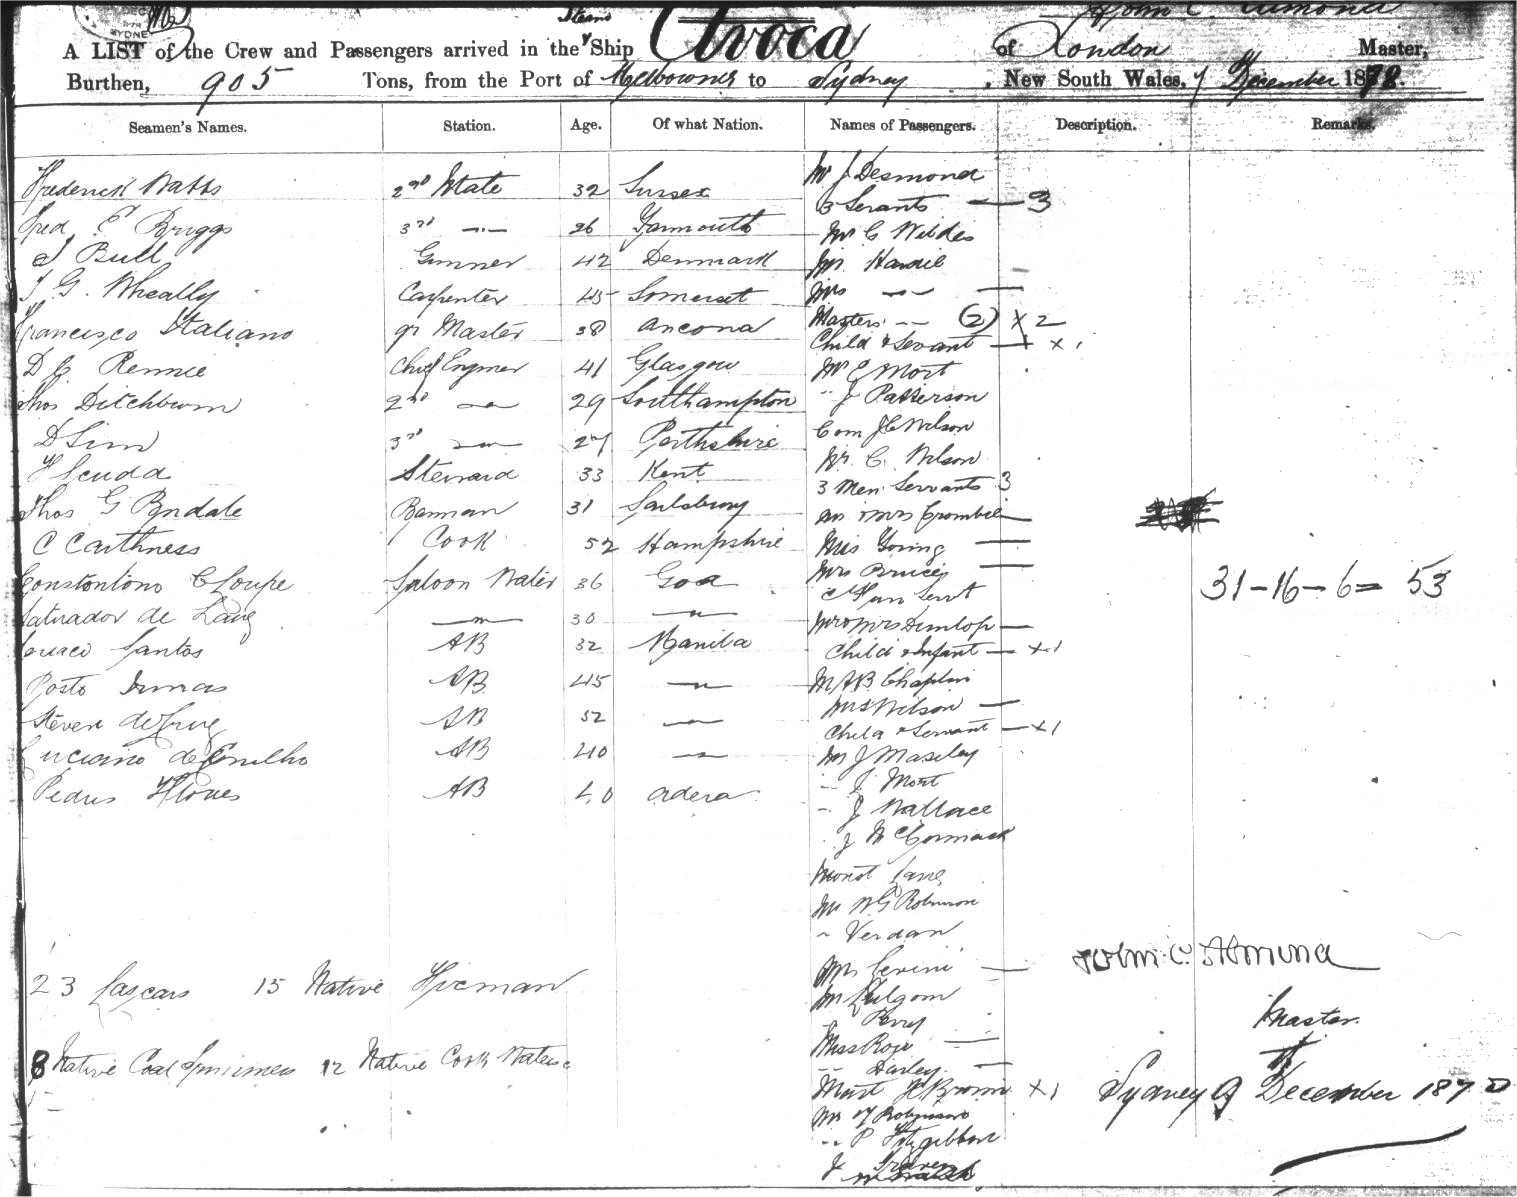 SYDNEY
John C. Almond
A LIST of the Crew and Passengers arrived in the Steam Ship Avoca of London Master,
Burthen, 905 Tons, from the Port of Melbourne to Sydney, New South Wales, 7 December 1878.
Seamen's Names. Station. Age. Of what Nation. Names of Passengers. Description. Remarks.
Mr J Desmond
Frederick Watts 2nd Mate 32 Sussex
3 Servants — 3
Fred E Briggs 3rd —"— 26 Yarmouth
Mr C Wildes
J Bull Gunner 42 Denmark Mr Hardie
J G. Wheally Carpenter 45 Somerset Mrs —"— —
Francisco Italiano qr Master 38 Ancona Masters -"- (2) x 2
Child & Servant — + x 1
D C Rennie Chief Enginer 41 Glasgow Mr E Mort
Thos Ditchburn 2nd —"— 29 Southampton " J Patterson
Com J C Wilson
D Sim 3rd —"— 27 Perthshire
Mr C. Wilson
H Scudd Steward 33 Kent
3 Men Servants 3
Thos G Bndale Barman 31 Salsbury Mr & Mrs Crombie —
C Caithness Cook 52 Hampshire Miss Goring —
Mrs Bruces —
Constantino C Loupe Saloon Waiter 36 Goa 31-16-6= 53
Servt
Salvador de Lauz —"— 30 —"—
Mr & Mrs Dunlop —
Santos AB 32 Manila Child & Infant — x 1
AB 45 —"— M A B Chaplin
Steven de Cruz AB 52 —"— Mrs Wilson —
Child & Servant — x 1
Luciano de AB 40 —"— Mr J Maseley
" J. Mort
Pedris Flores AB 40
" J Wallace
" J McCormack
Mr W G Robinson
" Verdan
John C. Almond
Mrs Levini —
23 Lascars 15 Native Fireman
Mr Kilgom
" Perry
Master.
Miss Rope —
8 Native Coal 12 Native Cook
" Darley —
Mast H Brown x 1 Sydney 9th December 1878
Mr Y Robinson
-" P Fitzgibbon
J